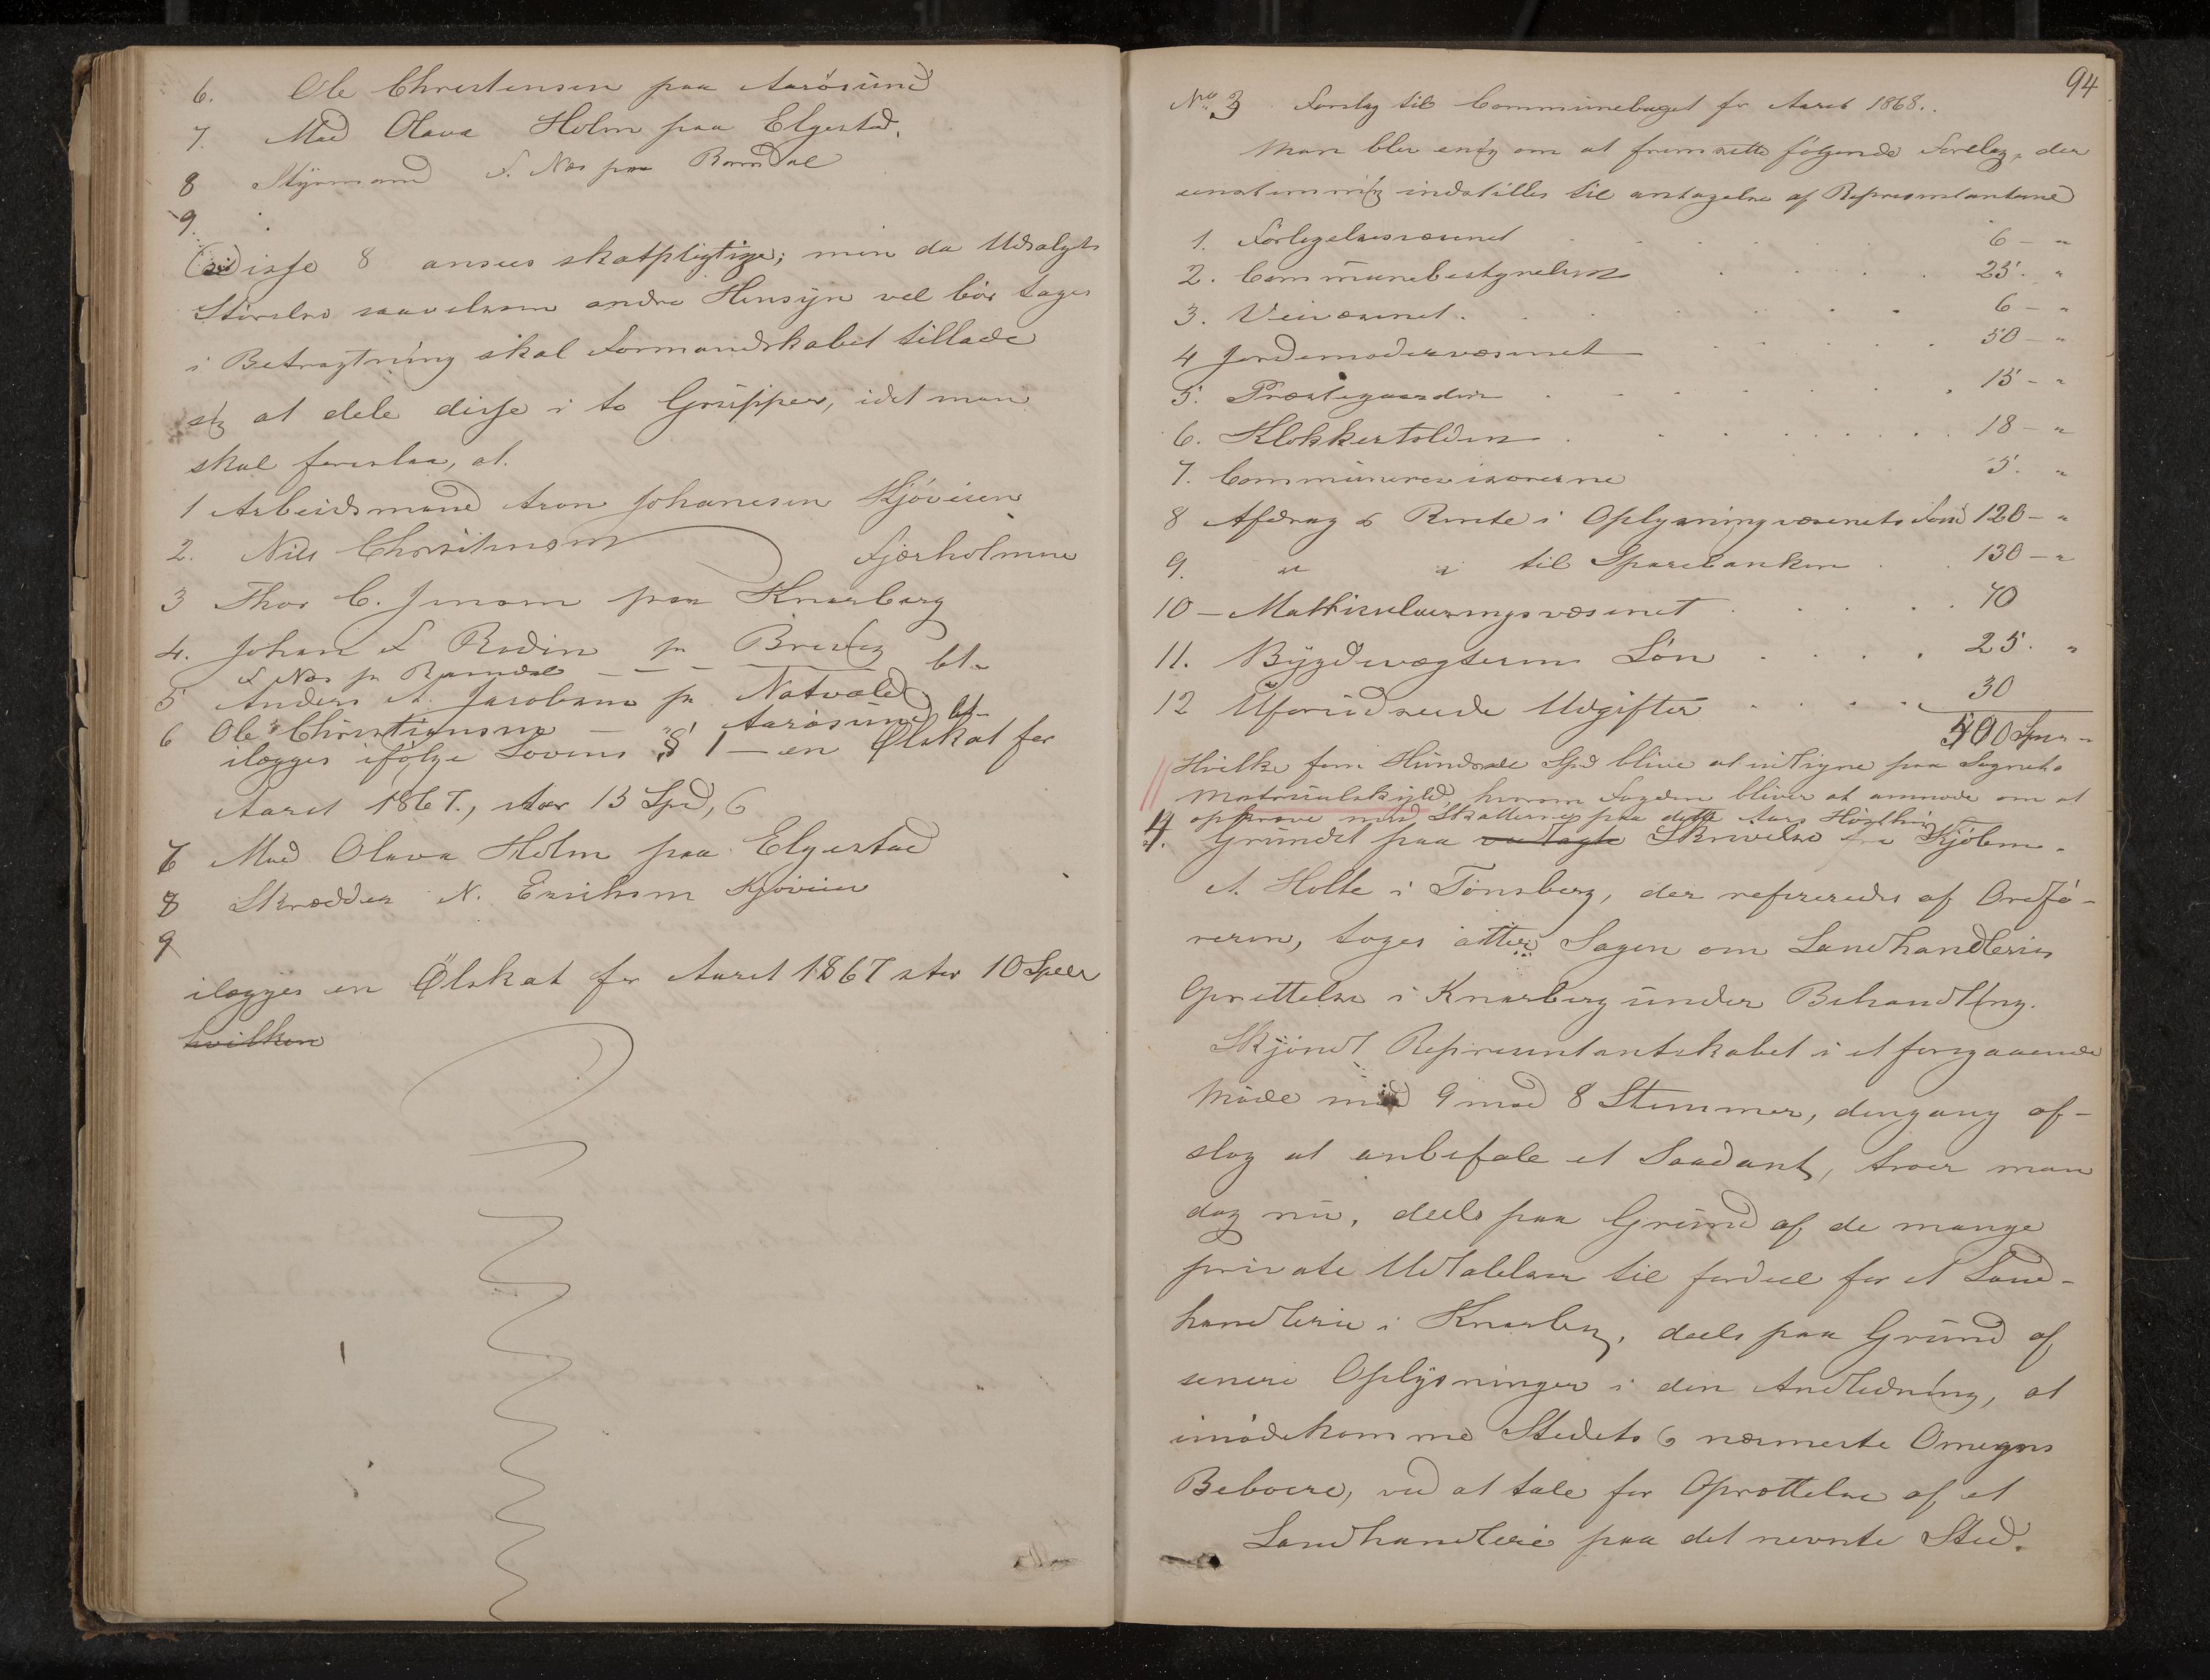 6. Ole Christensen paa Aarösund
7. Mad Olava Holm paa Elgestad.
8 Styrmand F. Næs paa Ramdal
9.
disse 8 ansees skatpligtige; men da Udsalgets
Störelse saavelsom andre Hensyn vel bör tages
i Betragtning skal Formandskabet tillade
sig at dele disse i to Grupper, idet man
skal foreslaa, at.
1 Arbeidsmand Aron Johanesen Kjöveien
2. Nils Christensen Fjærholmen
3 Thor C. Jensen paa Knarberg
4. Johan F Bodin pr Brevig
F Næs pr Ramdal — — — bet.
5 Anders A. Jacobsen pr Natvald
6 Ole Christiansen — " Aarösund bet-
ilægges ifölge Lovens § 1 — en Ölskat for
Aaret 1867., stor 15 Spd,
7 Mad Olava Holm paa Elgestad
8 Skrædder N. Erichsen Kjöveien
9
ilægges en Ölskat for Aaret 1867 stor 10 Spdlr
hvilken
94
No 3 Forslag til Communebuget for Aaret 1868..
Man blev enig om at fremsætte fölgende Forslag, der
eenstemmig indstilles til antagelse af Representantene
1. Forligelsesvæsenet 6 - "
2. Communebestyrelsen 25. "
3. Veivæsenet 6 - "
4 Jordemodervæsenet 50 - "
5. Præstegaarden 15 - "
6. Klokkertolden 18 - "
7. Communerevisorerne 5. "
8 Afdrag & Rente i Oplysningvæsenets Fond 120 - "
9. " " til Sparebanken 130 - "
10 - Matrikuleringsvæsenet 70
11. Bygdevægterens Lön 25. "
12 Uforudseede Udgifter 30
500 Spd -
Hvilke fem Hundrede Spd blive at udligne paa Sognets
Matriculskyld, hvorom Fogden bliver at anmode om at
opkræve med Skatterne paa dette Aars Hösthing
4. Grundet paa vedlagte Skrivelse fra Kjöbm.
A. Holte i Tönsberg, der refereredes af Ordfö-
reren, toges atter Sagen om Landhandleries
Oprettelse i Knarberg under Behandling.
Skjöndt Representantskabet i et foregaaende
Möde med 9 mod 8 Stemmer, dengang af-
slog at anbefale et Saadant, troer man
dog nu, deels paa Grund af de mange
private Udtalelser til fordeel for et Land-
handlerie i Knarberg, deels paa Grund af
senere Oplysninger i den Andledning, at
imödekomme Stedets & nærmeste Omegns
Beboere, ved at tale for Oprettelse af et
Landhandlerie paa det nevnte Sted.